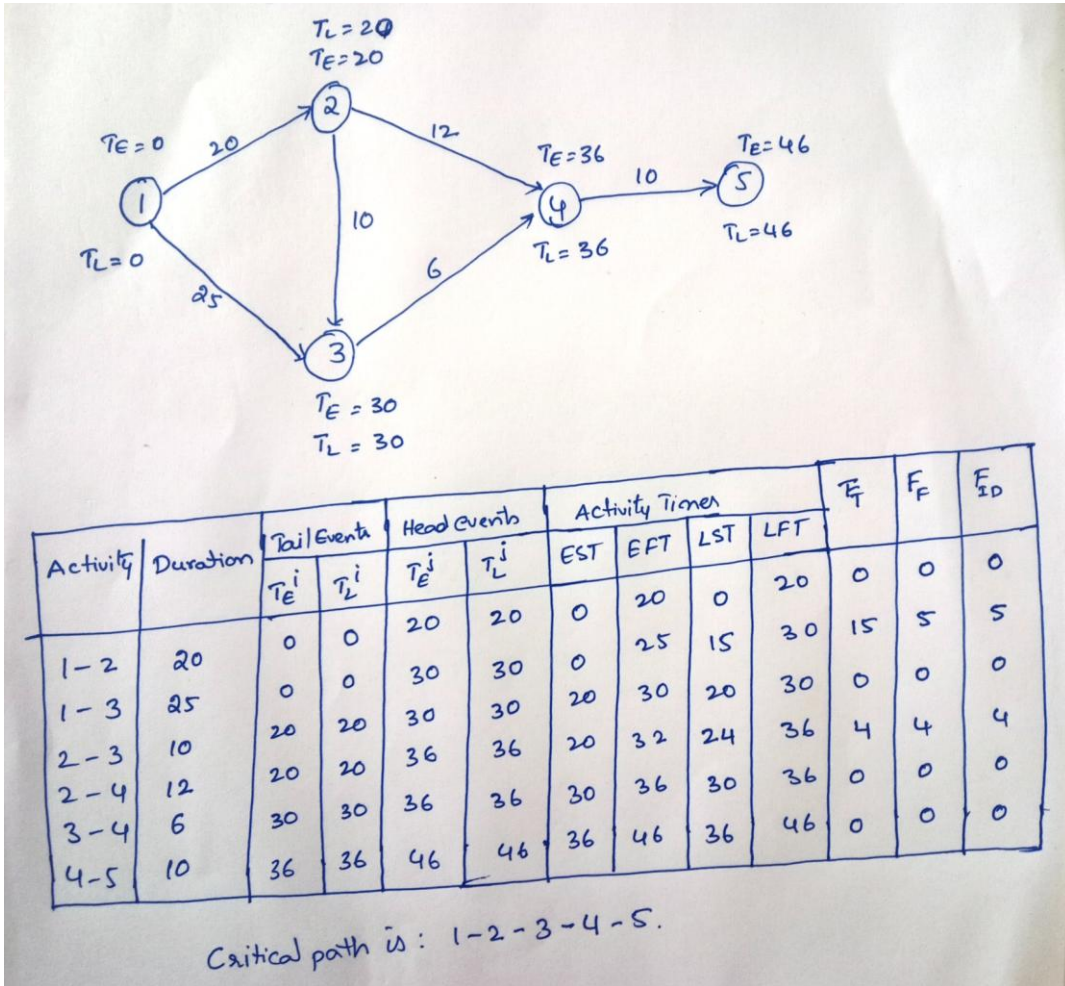 TL = 20
TE = 20
2
TE = 0
20
12
TE = 36
TE = 46
1
10
4
10
5
TL = 0
TL = 36
TL = 46
25
6
3
TE = 30
TL = 30
Activity Duration Tail Events Head Events Activity Times FT FF FID
TE i TL i TE j TL j EST EFT LST LFT
1-2 20 0 0 20 20 0 20 0 20 0 0 0
1-3 25 0 0 30 30 0 25 15 30 15 5 5
2-3 10 20 20 30 30 20 30 20 30 0 0 0
2-4 12 20 20 36 36 20 32 24 36 4 4 4
3-4 6 30 30 36 36 30 36 30 36 0 0 0
4-5 10 36 36 46 46 36 46 36 46 0 0 0
Critical path is : 1-2-3-4-5.